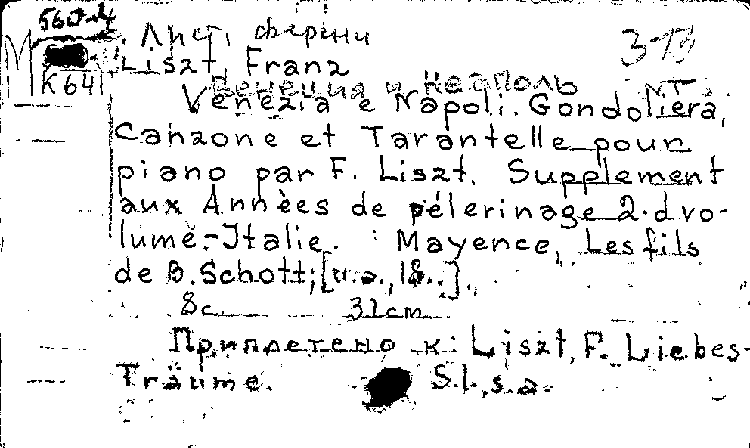 Лист, Ференц
Liszt, Franz
К 64
3-13
Венеция и Неаполь
Venezia e Napoli. Gondoliera,
Canzone et Tarantelle pour
piano par F. Liszt. Supplement
aux Années de pélerinage 2.d vo-
lume.-Italie. : Mayence, Les fils
de B. Schott; [u.a., 18..].
8c. 31cm
Приплетено к: Liszt, F. Liebes-
Träume. S.l., s.a.